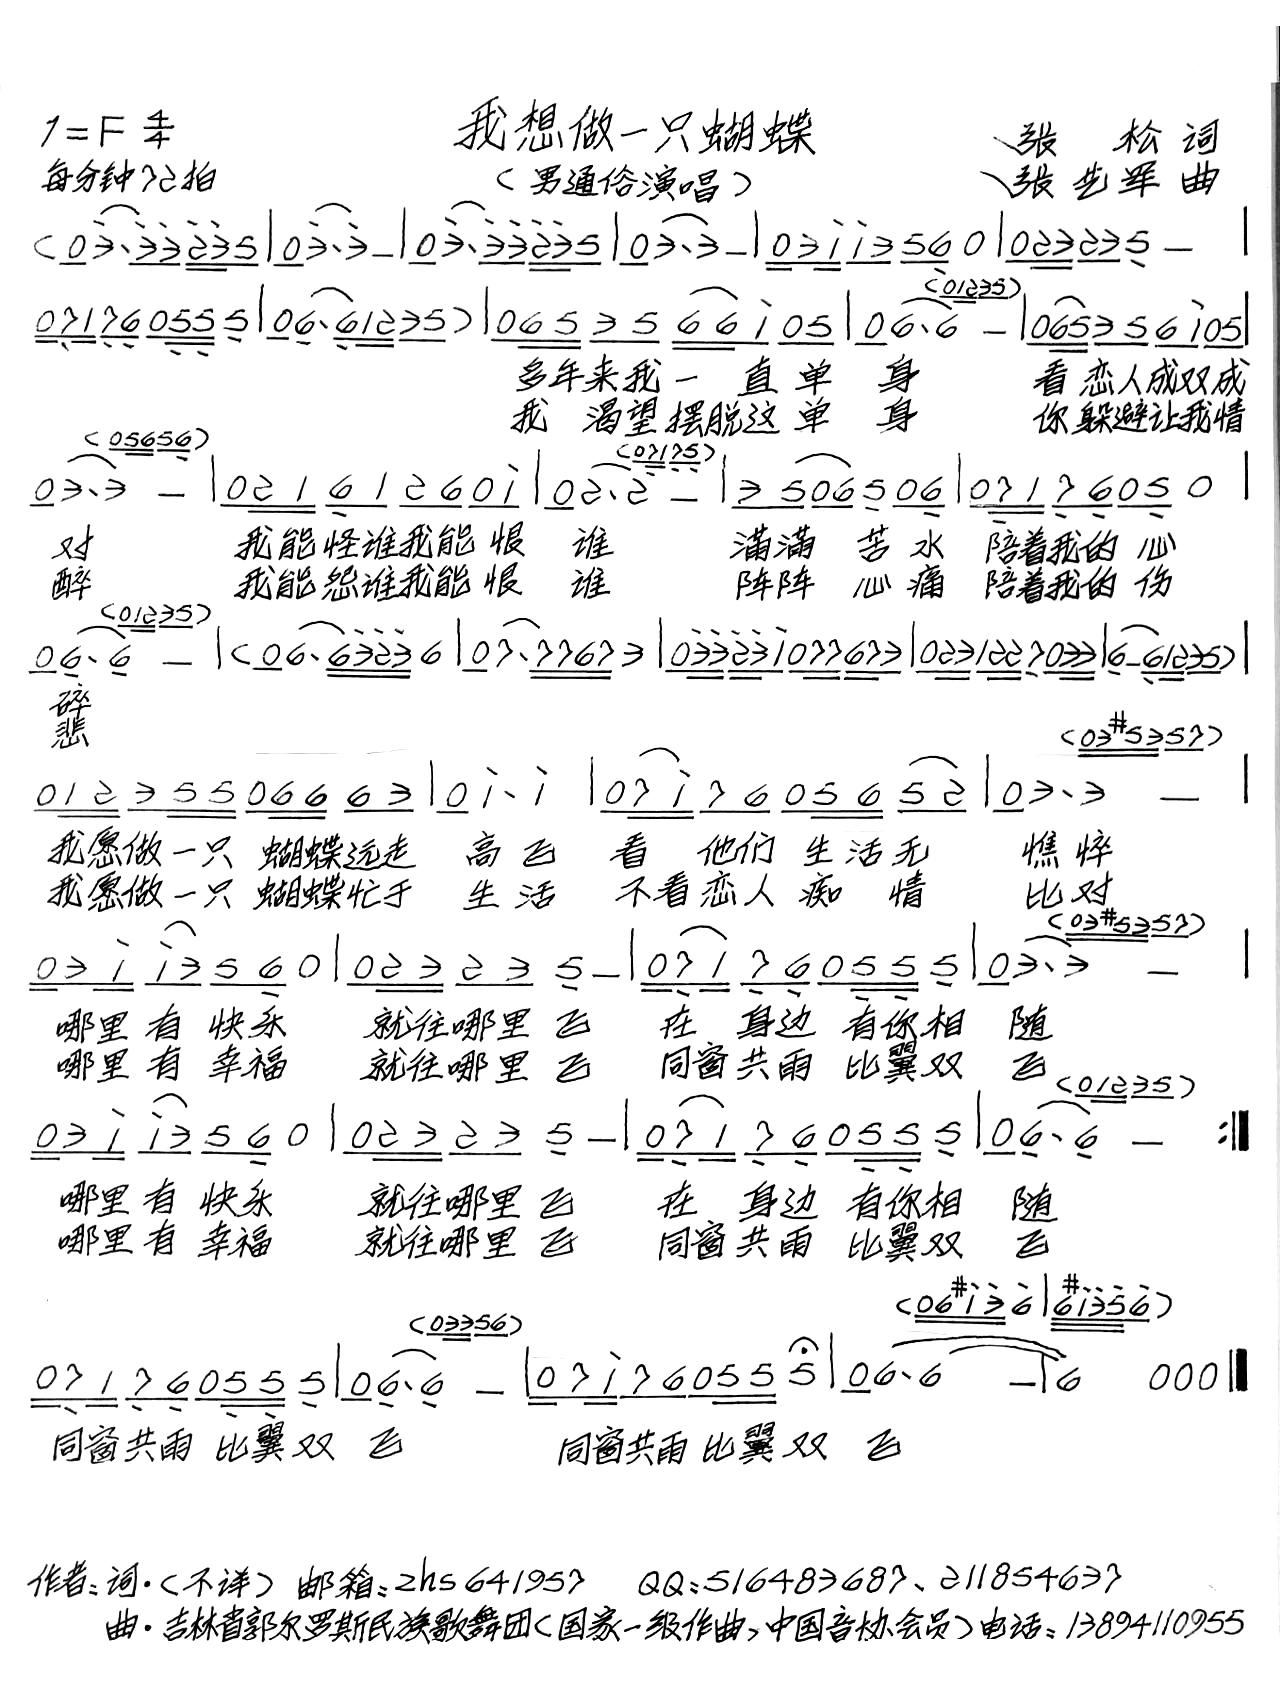 1=F 4/4
我想做一只蝴蝶
张 松 词
每分钟72拍
(男通俗演唱)
张先军 曲
(03·33235|03·3-|03·33235|03·3-|03113560|023235-|
07176055 5|06·61235)|0653566105|06·6-|065356105|
(01235)
多年来我一直单身 看恋人成双成
我渴望摆脱这单身 你躲避让我情
(05656) (07175)
03·3-|021612601|02·2-|3506506|07176050|
对 我能怪谁我能恨谁 满满苦水 陪着我的心
醉 我能怨谁我能恨谁 阵阵心痛 陪着我的伤
(01235)
06·6-|(06·63236|07·77673|033231077673|0231227033|6-61235)|
碎
悲
(03#5357)
012355506663|01·1|0717605652|03·3-|
我愿做一只蝴蝶远走高飞 看他们生活无憔悴
我愿做一只蝴蝶忙于生活 不看恋人痴情比对
(03#5357)
03113560|023235-|071760555|03·3-|
哪里有快乐 就往哪里飞 在身边有你相随
哪里有幸福 就往哪里飞 同窗共雨比翼双飞
(01235)
03113560|023235-|071760555|06·6-:‖
哪里有快乐 就往哪里飞 在身边有你相随
哪里有幸福 就往哪里飞 同窗共雨比翼双飞
(03356) (06#136|6#1356)
071760555|06·6-|071760555|06·6-|6000‖
同窗共雨比翼双飞 同窗共雨比翼双飞
作者:词·(不详) 邮箱:zhs641957 QQ:516483687、211854637
曲·吉林省郭尔罗斯民族歌舞团(国家一级作曲,中国音协会员)电话:13894110955